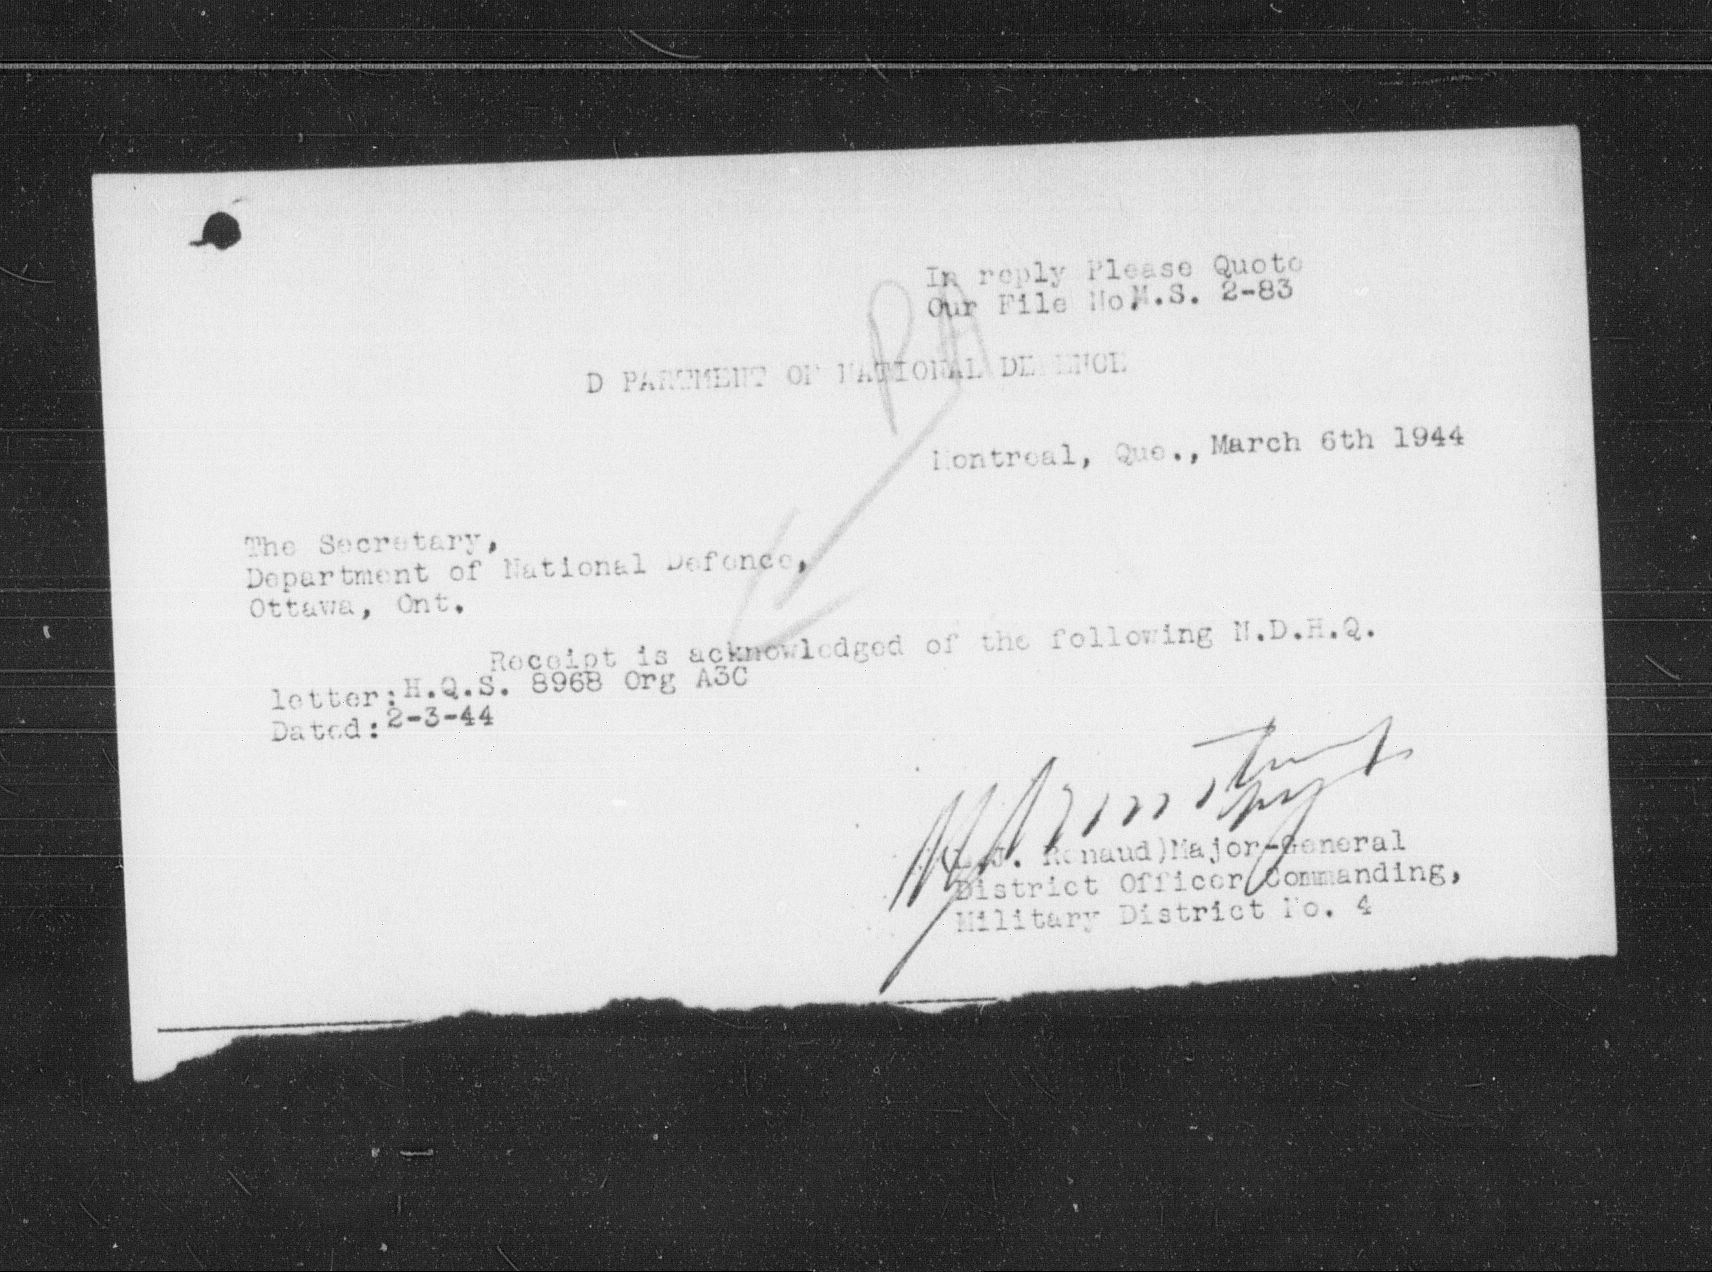 In reply Please Quote
Our File No.M.S. 2-83
PA
D PARTMENT OF NATIONAL DEFENCE
Montreal, Que., March 6th 1944
The Secretary,
Department of National Defence,
Ottawa, Ont.
Receipt is acknowledged of the following N.D.H.Q.
letter:H.Q.S. 8968 Org A3C
Dated:2-3-44
(E.J. Renaud)Major-General
District Officer Commanding,
Military District No. 4